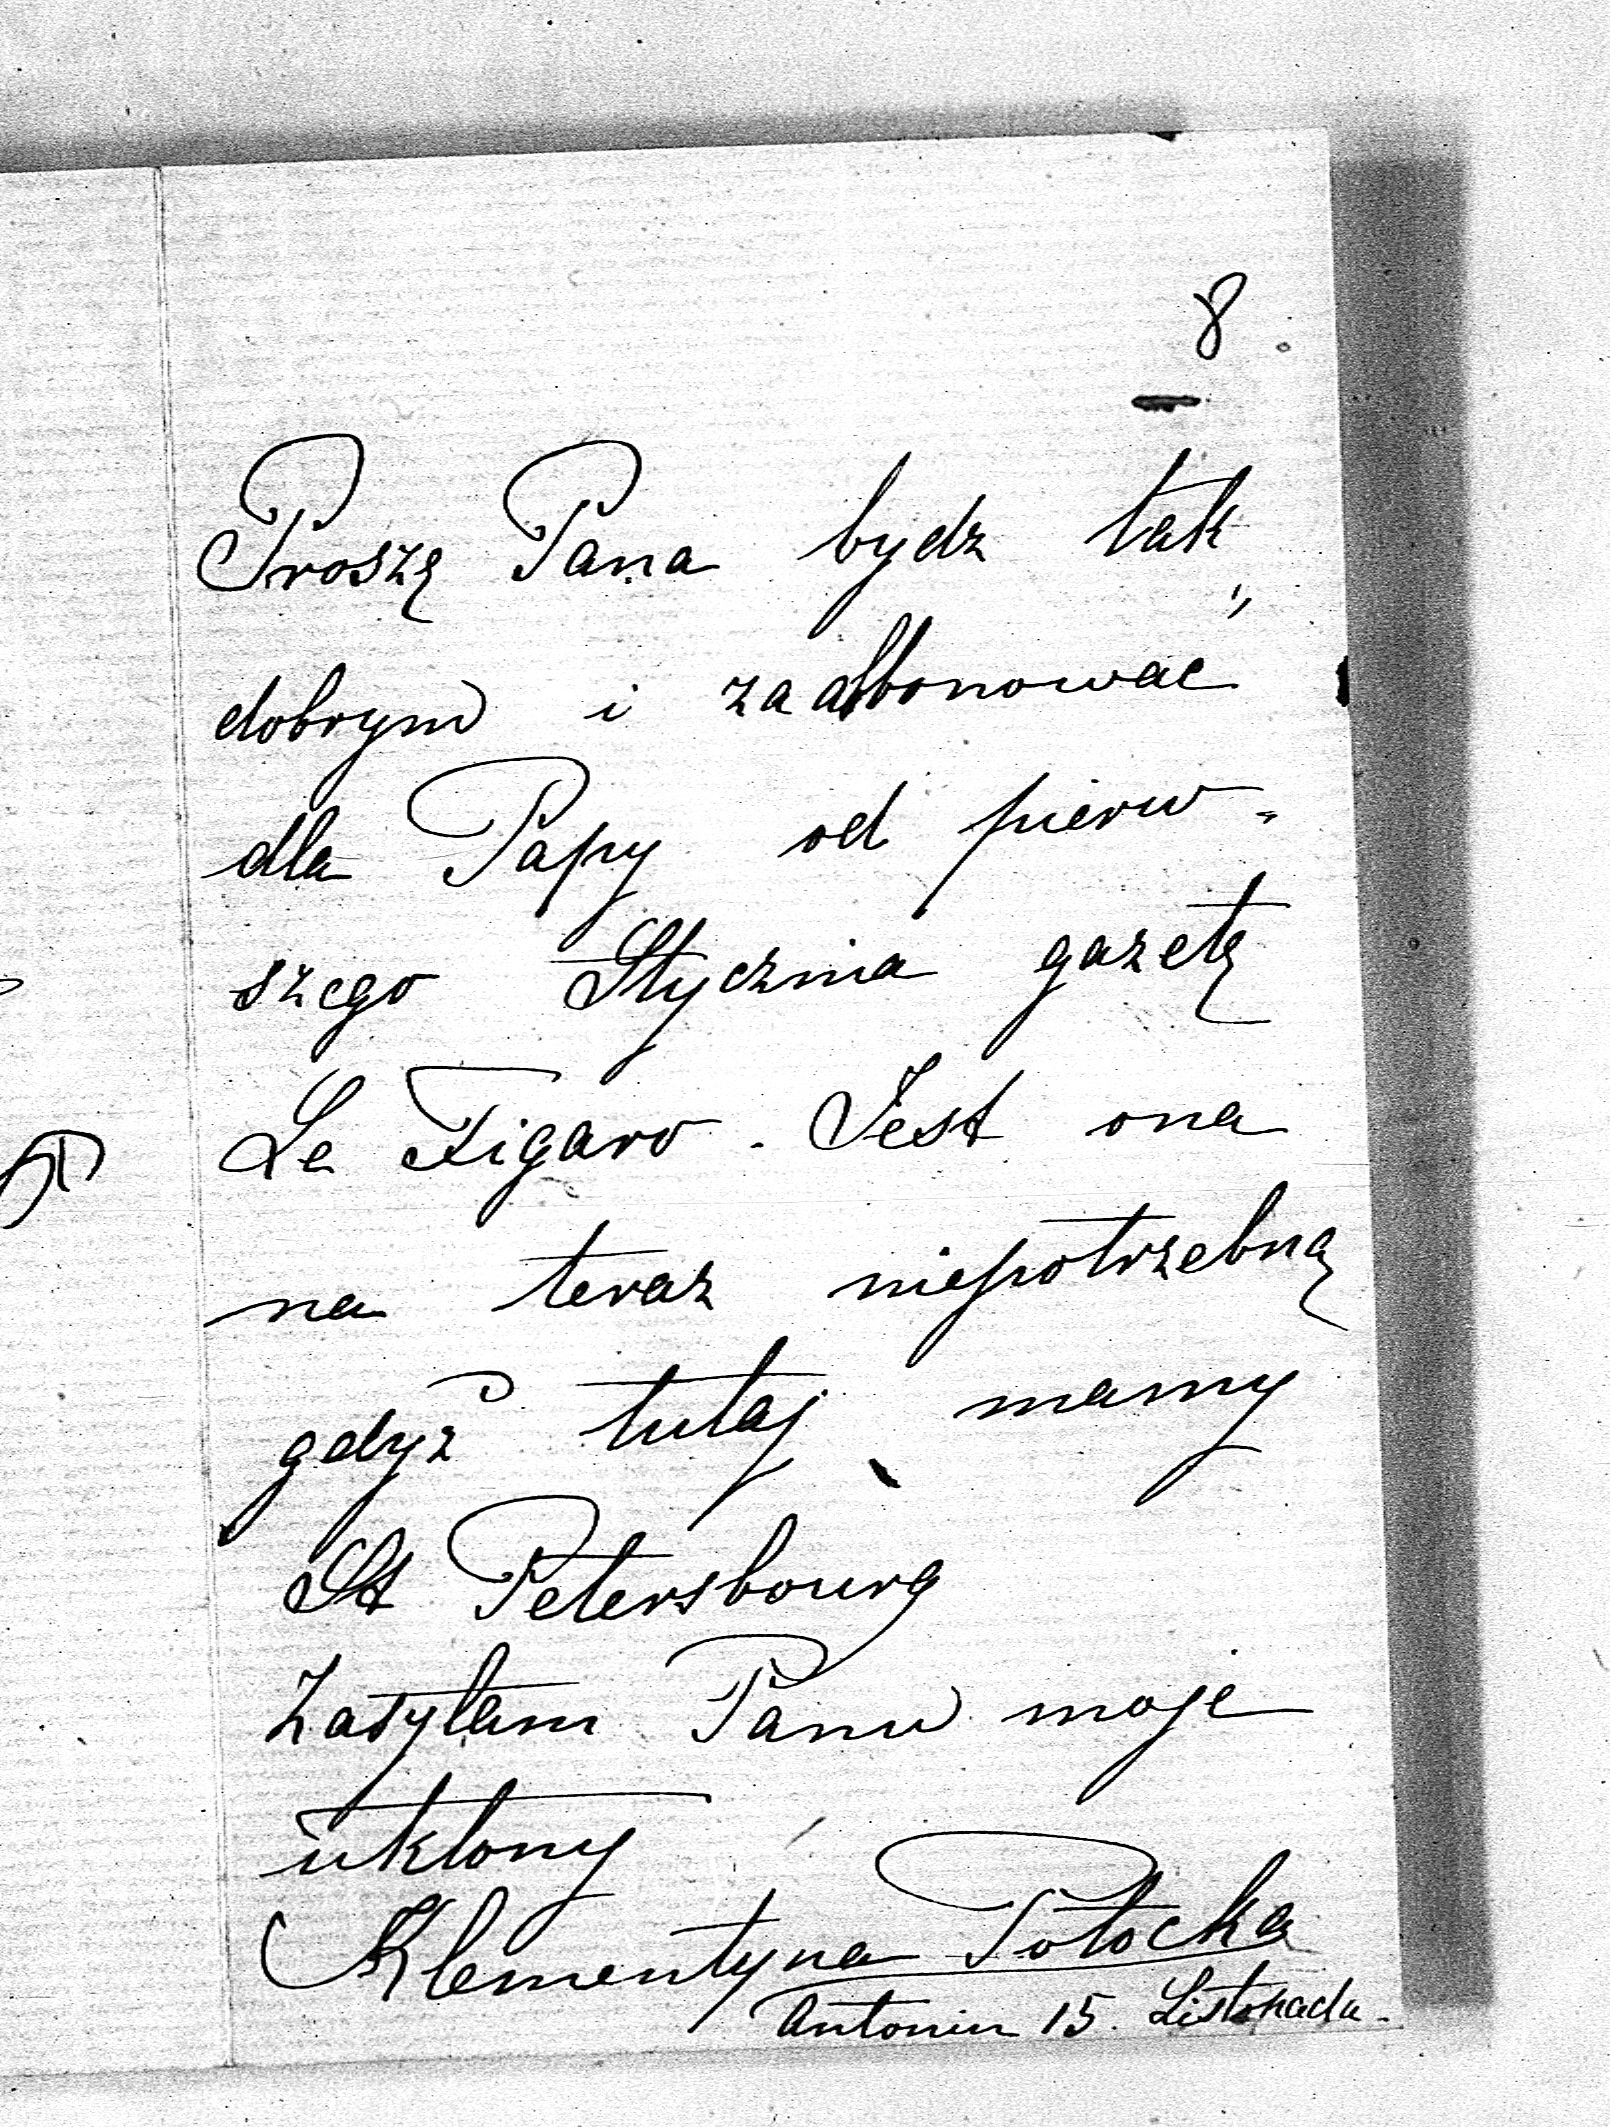 8.
Proszę Pana bydz tak
dobrym i zaabonowac
dla Papy od pierw-
szego Stycznia gazetę
Le Figaro. Jest ona
na teraz niepotrzebną
gdyż tutaj mamy
St Petersbourg
Zasyłam Panu moje
ukłony
Klementyna Potocka
Antonin 15. Listopada.